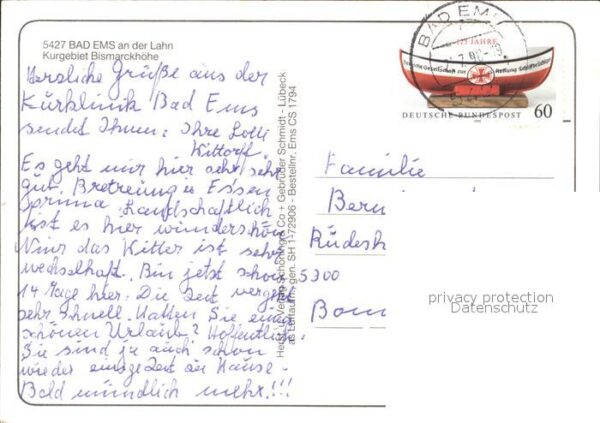 5427 BAD EMS an der Lahn
Kurgebiet Bismarckhöhe
Herzliche Grüße aus der
Kurklinik Bad Ems
sendt Ihnen: Ihre Lotti
Kittorf.
Es geht mir hier sehr sehr
gut. Betreuung u Essen
prima. Landschaftlich
ist es hier wunderschön
Nur das Witter ist sehr
wechselhaft. Bin jetzt schon
14 Tage hier. Die Zeit vergeht
sehr schnell. Hatten Sie einen
schönen Urlaub? Hoffentlich
Sie sind ja auch schon
wieder einige Zeit zu Hause.
Bald mündlich mehr!!!
Schöning & Co + Gebrüder Schmidt - Lübeck
gen. SH 1-72906 - Bestellnr. Ems CS 1794
BAD EMS
125 JAHRE
Deutsche Gesellschaft zur Rettung Schiffbrüchiger
DEUTSCHE BUNDESPOST 60
Familie
Bern
Rüdesh
5300
Bonn
privacy protection
Datenschutz